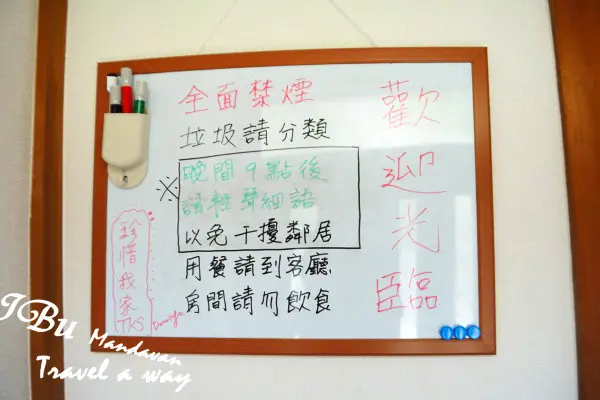 歡迎光臨
全面禁煙
垃圾請分類
※
晚間9點後
請輕聲細語
以免干擾鄰居
用餐請到客廳
房間請勿飲食
珍惜我家
TKS
Domingo
IBU
Mandavan
Travel a way